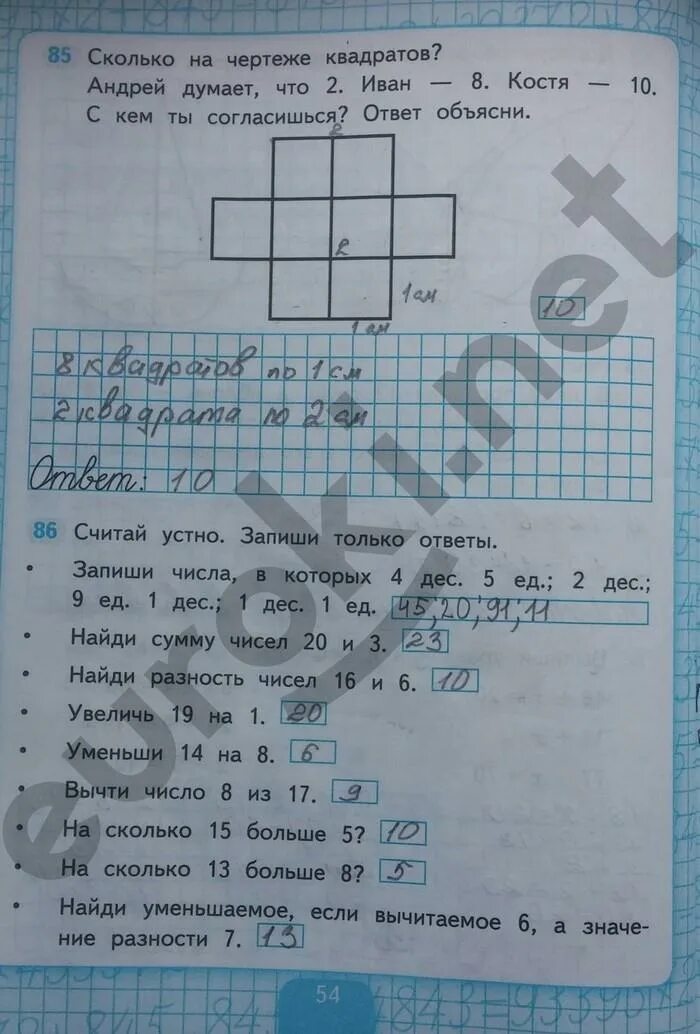 85 Сколько на чертеже квадратов?
Андрей думает, что 2. Иван — 8. Костя — 10.
С кем ты согласишься? Ответ объясни.
2
2
1 см
1 см
10
8 квадратов по 1 см
2 квадрата по 2 см
Ответ: 10
86 Считай устно. Запиши только ответы.
• Запиши числа, в которых 4 дес. 5 ед.; 2 дес.;
9 ед. 1 дес.; 1 дес. 1 ед. 45, 20, 91, 11
• Найди сумму чисел 20 и 3. 23
• Найди разность чисел 16 и 6. 10
• Увеличь 19 на 1. 20
• Уменьши 14 на 8. 6
• Вычти число 8 из 17. 9
• На сколько 15 больше 5? 10
• На сколько 13 больше 8? 5
• Найди уменьшаемое, если вычитаемое 6, а значе-
ние разности 7. 13
54
euroki.net